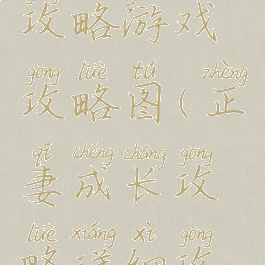 攻略游戏
gōng lüè tú zhèng
攻略图(正
qī chéng cháng gōng
妻成长攻
lüè xiáng xì gōng
略详细攻